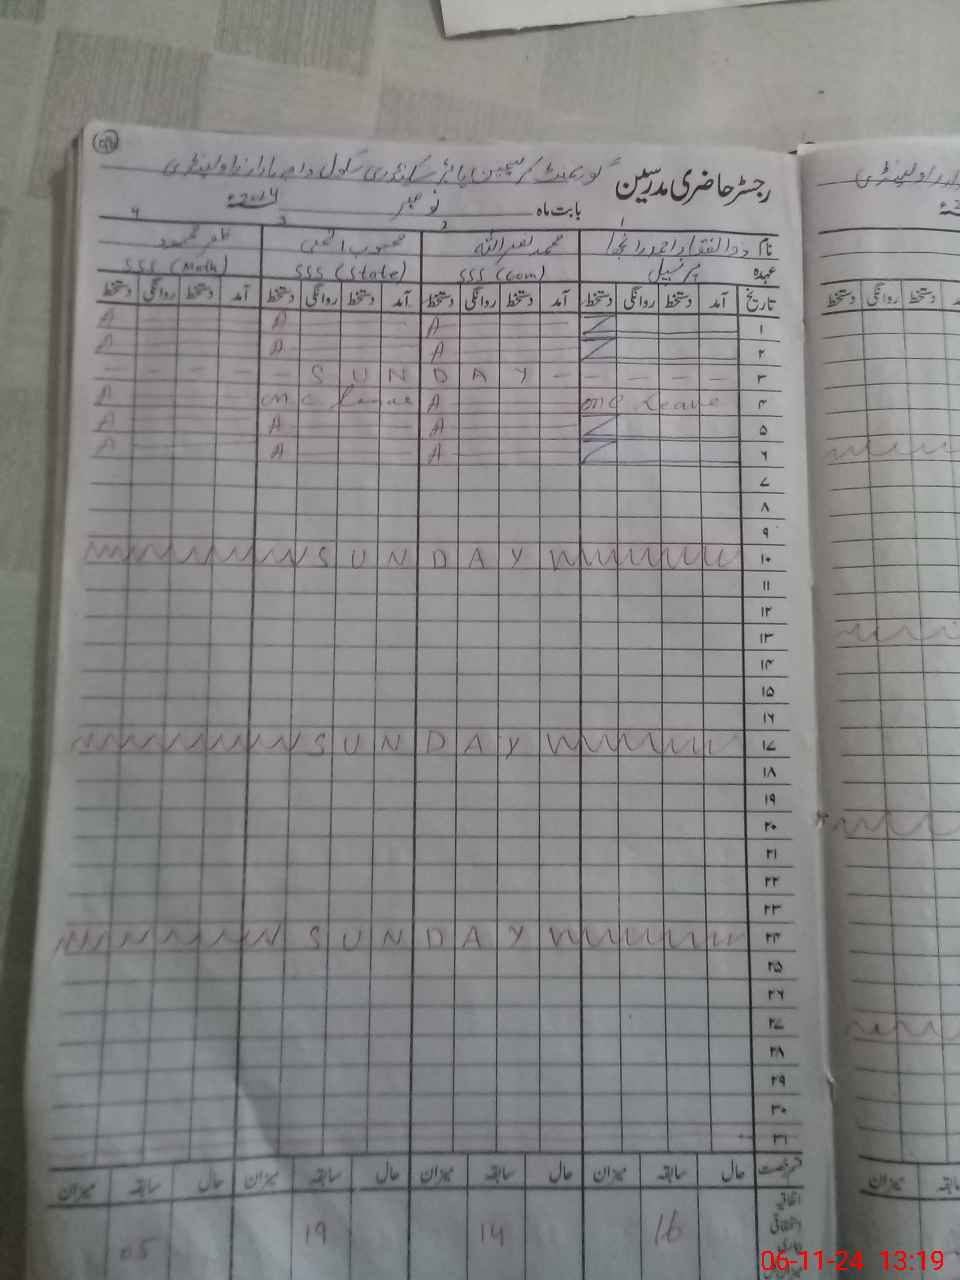 رجسٹر حاضری مدرسین گورنمنٹ کرسچین ہائر سکینڈری سکول راولپنڈی
بابت ماہ نومبر
1 2 3 4
نام محمد نصراللہ
عہدہ پرنسپل SSS (Com) SSS (State) SSS (Math)
تاریخ آمد دستخط روانگی دستخط آمد دستخط روانگی دستخط آمد دستخط روانگی دستخط آمد دستخط روانگی دستخط
۱ A A A
۲ A A A
۳ - - - - - S U N D A Y - - - - -
۴ A Leave A one Leave
۵ A A A
۶ A A A
۷
۸
۹
۱۰ S U N D A Y
۱۱
۱۲
۱۳
۱۴
۱۵
۱۶
۱۷ S U N D A Y
۱۸
۱۹
۲۰
۲۱
۲۲
۲۳
۲۴ S U N D A Y
۲۵
۲۶
۲۷
۲۸
۲۹
۳۰
۳۱
قسم رخصت حال سابقہ میزان حال سابقہ میزان حال سابقہ میزان حال سابقہ میزان
اتفاقیہ
16 14 19 05
06-11-24 13:19
آمد دستخط روانگی دستخط
میزان